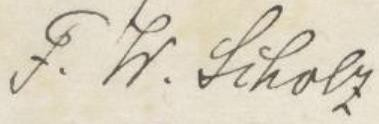 F. W. Scholz